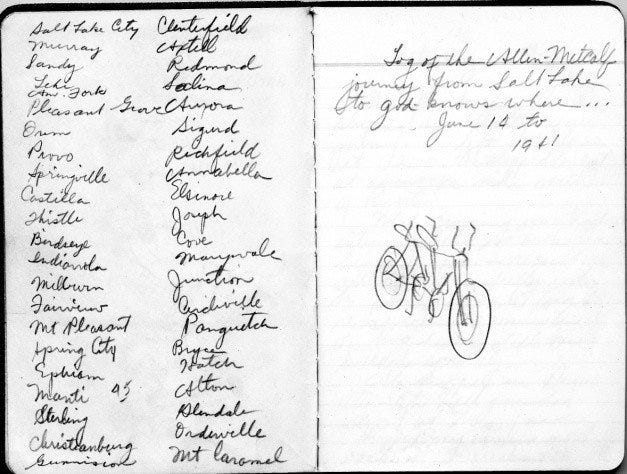 Salt Lake City
Murray
Sandy
Lehi
Am. Fork
Pleasant Grove
Orem
Provo
Springville
Castilla
Thistle
Birdseye
Indianola
Milburn
Fairview
Mt Pleasant
Spring City
Ephiam
Manti 45
Sterling
Christianburg
Gunnison
Centerfield
Axtell
Redmond
Salina
Aurora
Sigurd
Richfield
Annabella
Elsinore
Joseph
Cove
Marysvale
Junction
Circleville
Panguitch
Bryce
Hatch
Alton
Glendale
Orderville
Mt Caramel
Log of the Allen-Metcalf
journey from Salt Lake
to god knows where...
June 14 to
1941